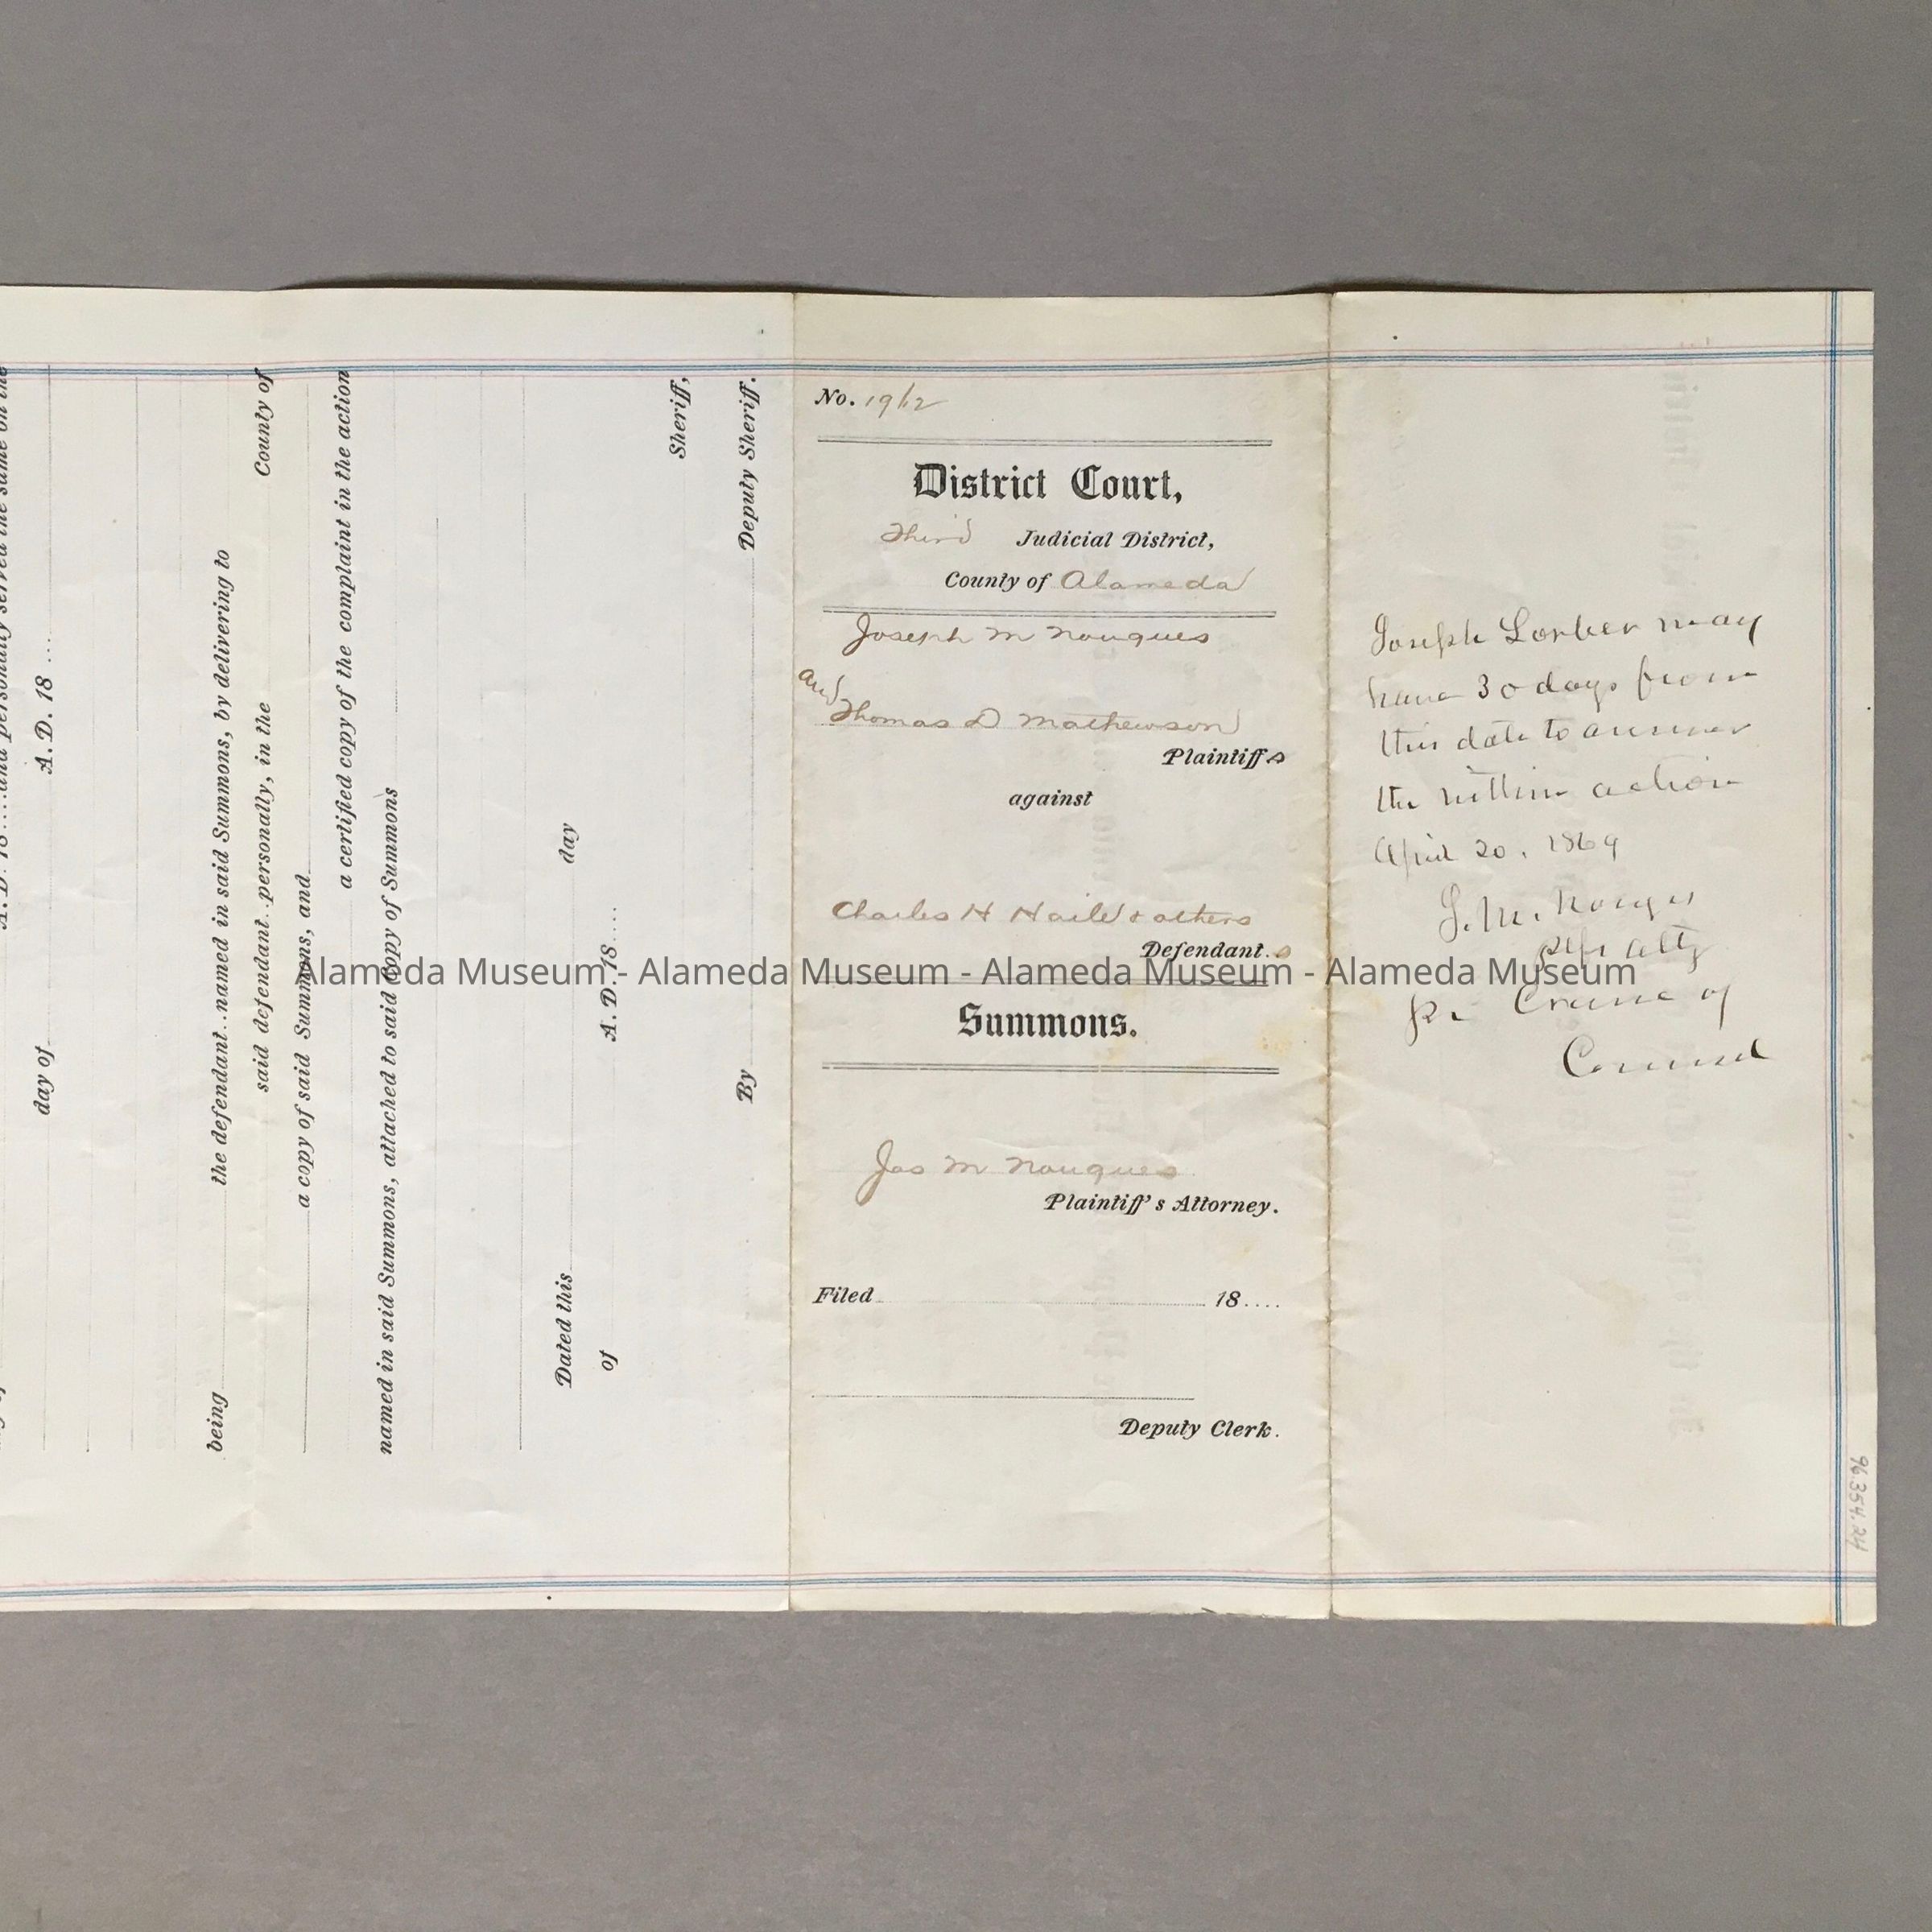 A. D. 18 .... and personally served the same on the
day of A. D. 18 ...
being the defendant..named in said Summons, by delivering to
said defendant..personally, in the County of
a copy of said Summons, and
a certified copy of the complaint in the action
named in said Summons, attached to said Copy of Summons
Dated this day
of A. D. 18....
Sheriff,
By Deputy Sheriff.
No. 1962
District Court,
Third Judicial District,
County of Alameda
Joseph M Nougues
and
Thomas D Mathewson
Plaintiffs
against
Charles H Haile & others
Defendant..s
Summons.
Jos M Nougues
Plaintiff's Attorney.
Filed 18....
Deputy Clerk.
Joseph Lorber may
have 30 days from
this date to answer
the within action
April 20, 1869
J. M. Nougues
Plfs atty
Crane of
Counsel
96.354.24
Alameda Museum - Alameda Museum - Alameda Museum - Alameda Museum